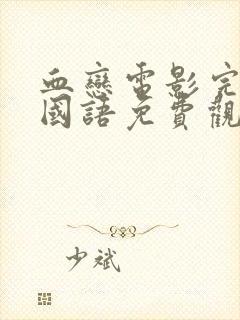 血戀電影完
國語免費觀
少斌